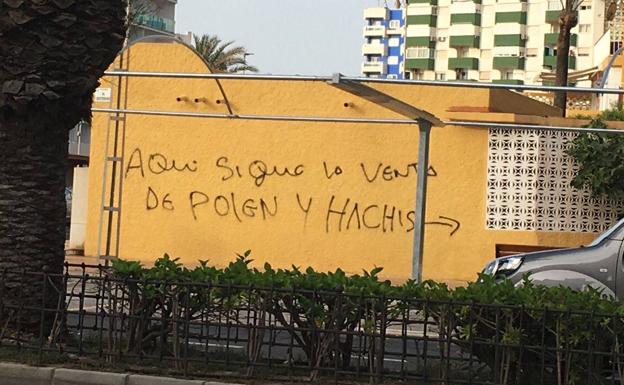 AQUí SIGUE LA VENTA
DE POLEN Y HACHIS →